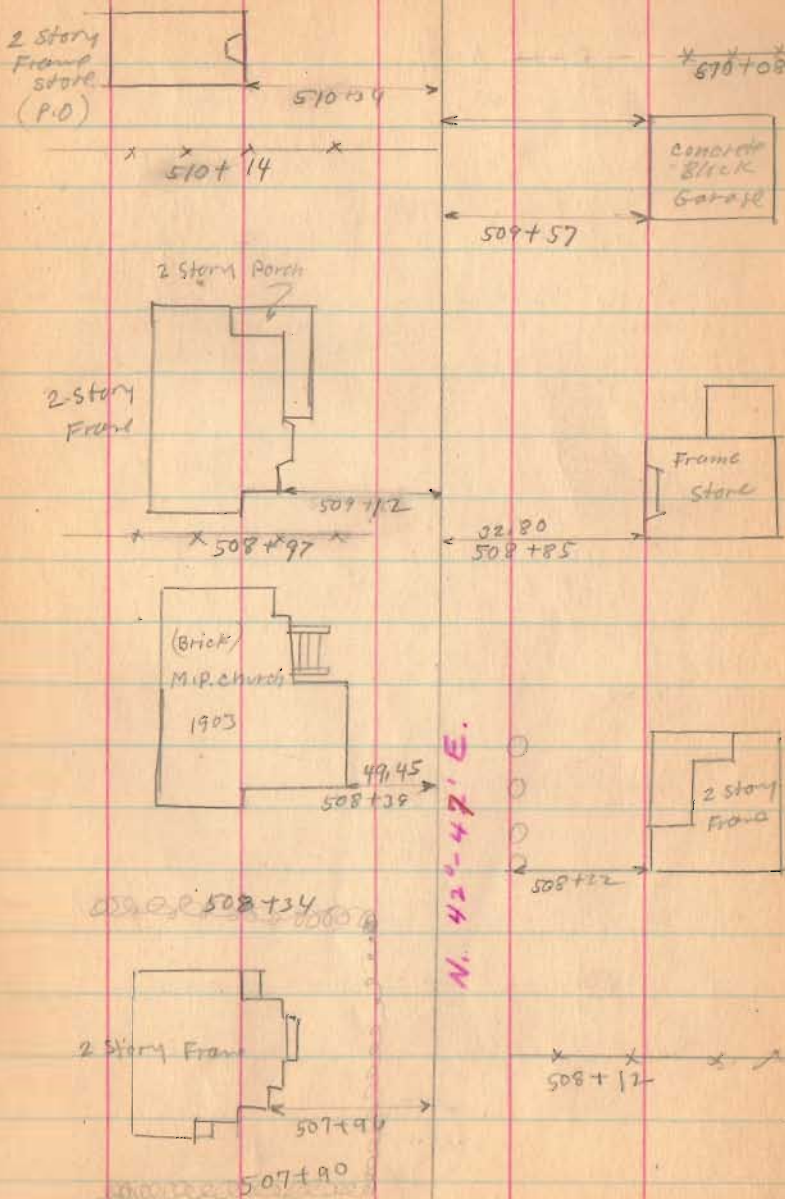 2 Story
Frame
Store
(P.O)
510+34
570+08
510+14
Concrete
Block
Garage
509+57
2 Story Porch
2-Story
Frame
509+12
Frame
Store
508+97
32.80
508+85
(Brick)
M.P. Church
1903
49.45
508+38
N. 42°-47' E.
2 Story
Frame
508+22
508+34
2 Story Frame
508+12
507+90